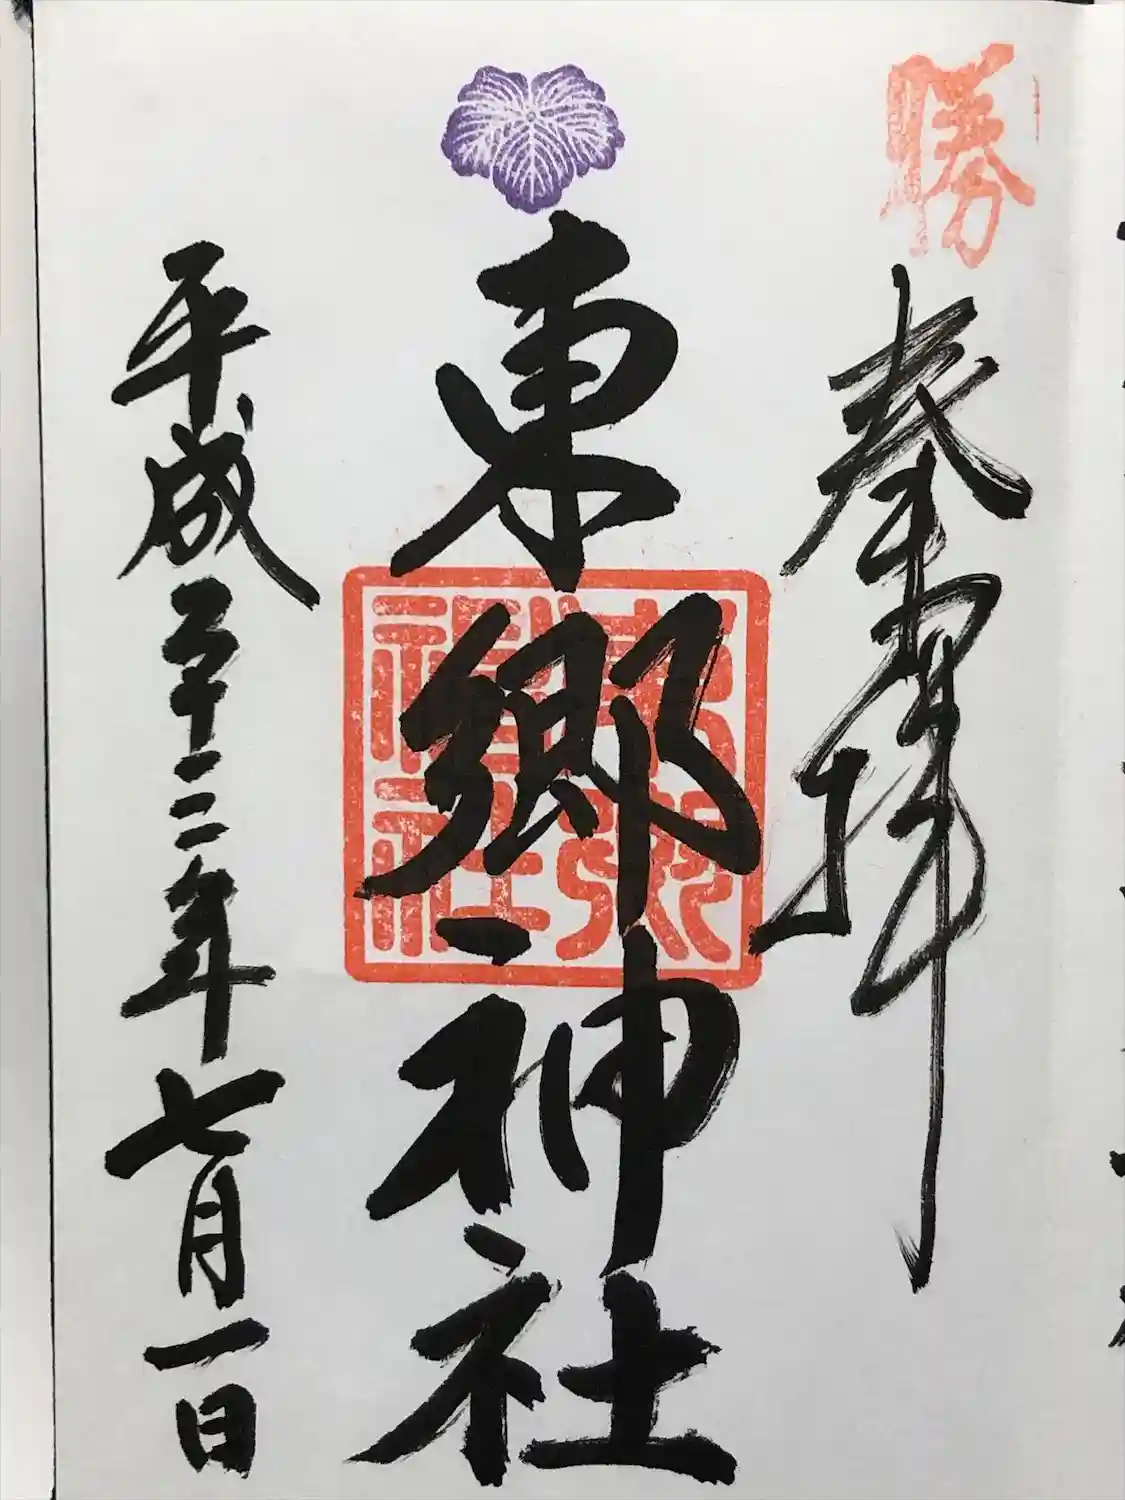 勝
奉拝
東郷神社
平成二十三年七月一日